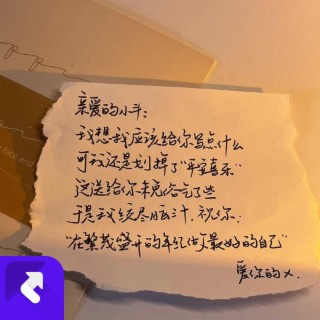 亲爱的小斗：
我想我应该给你写点什么
可我还是划掉了“平安喜乐”
这送给你未免俗气了些
于是我绞尽脑汁，祝你：
“在繁茂盛开的年纪做最好的自己”
爱你的 X.